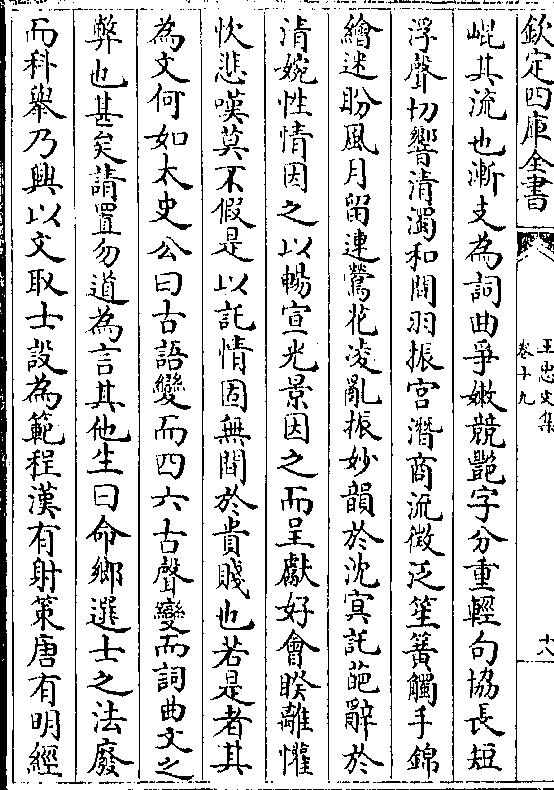 欽定四庫全書
王忠文集
卷十九
十八
崐其流也漸支為詞曲爭嫩競艷字分重輕句協長短
浮聲切響清濁和間羽振宮潛商流徵泛笙簧觸手錦
繪迷盼風月留連鶯花淩亂振妙韻於沈寞託葩辭於
清婉性情因之以暢宣光景因之而呈獻好會睽離懽
忺悲嘆莫不假是以託情固無間於貴賤也若是者其
為文何如太史公曰古語變而四六古聲變而詞曲文之
弊也甚矣請置勿道為言其他生曰命鄉選士之法廢
而科舉乃興以文取士設為範程漢有射策唐有明經